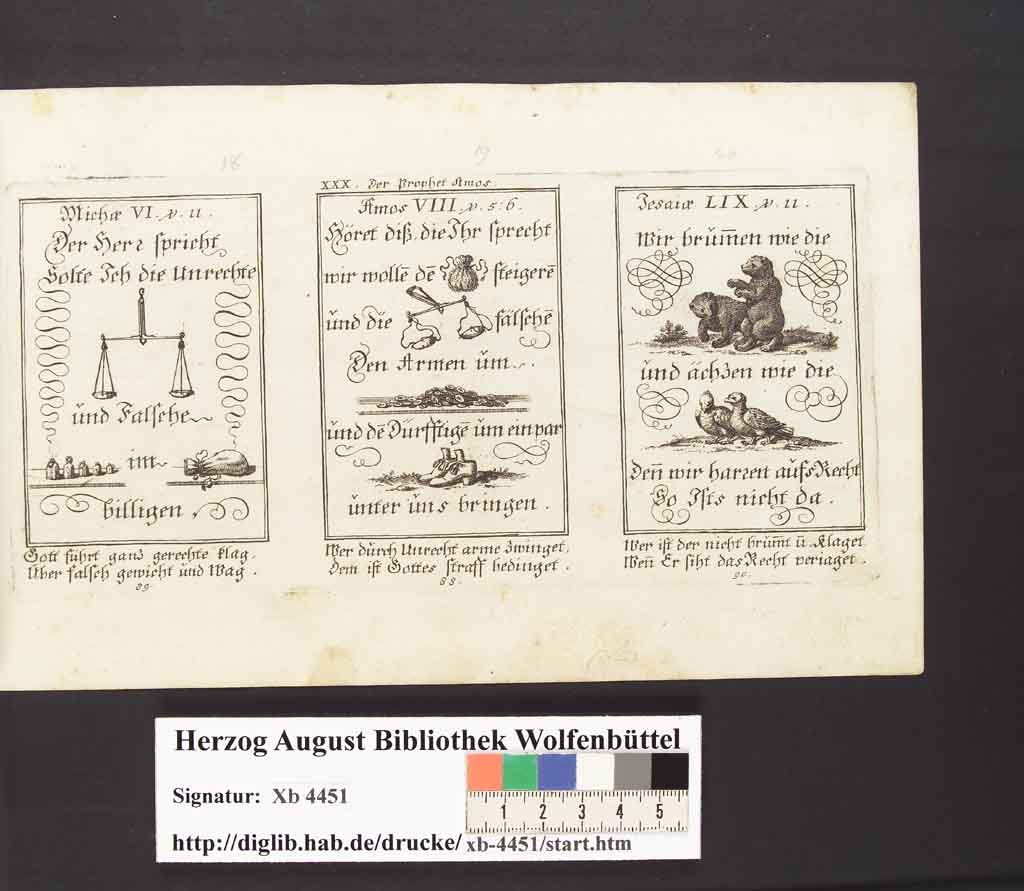 18
Michæ VI. v. 11.
Der Herr spricht
Solte Ich die Unrechte
und Falsche
im
billigen
Gott führt gantz gerechte klag.
Über falsch gewicht und Wag.
89
19
XXX. Der Prophet Amos.
Amos VIII. v. 5:6.
Höret diß, die Ihr sprecht
wir wollē dē steigerē
und die fälschē
Den Armen um
und dē Dürfftigē um ein par
unter uns bringen.
Wer durch Unrecht arme zwinget,
Dem ist Gottes straff bedinget.
88.
20
Jesaiæ LIX. v. 11.
Wir brum̅en wie die
und ächzen wie die
Den̅ wir harren aufs Recht
So Ists nicht da.
Wer ist der nicht brum̅t ū. Klaget
Wen̅ Er siht das Recht veriaget.
90.
Herzog August Bibliothek Wolfenbüttel
Signatur: Xb 4451
1 2 3 4 5
http://diglib.hab.de/drucke/ xb-4451/start.htm